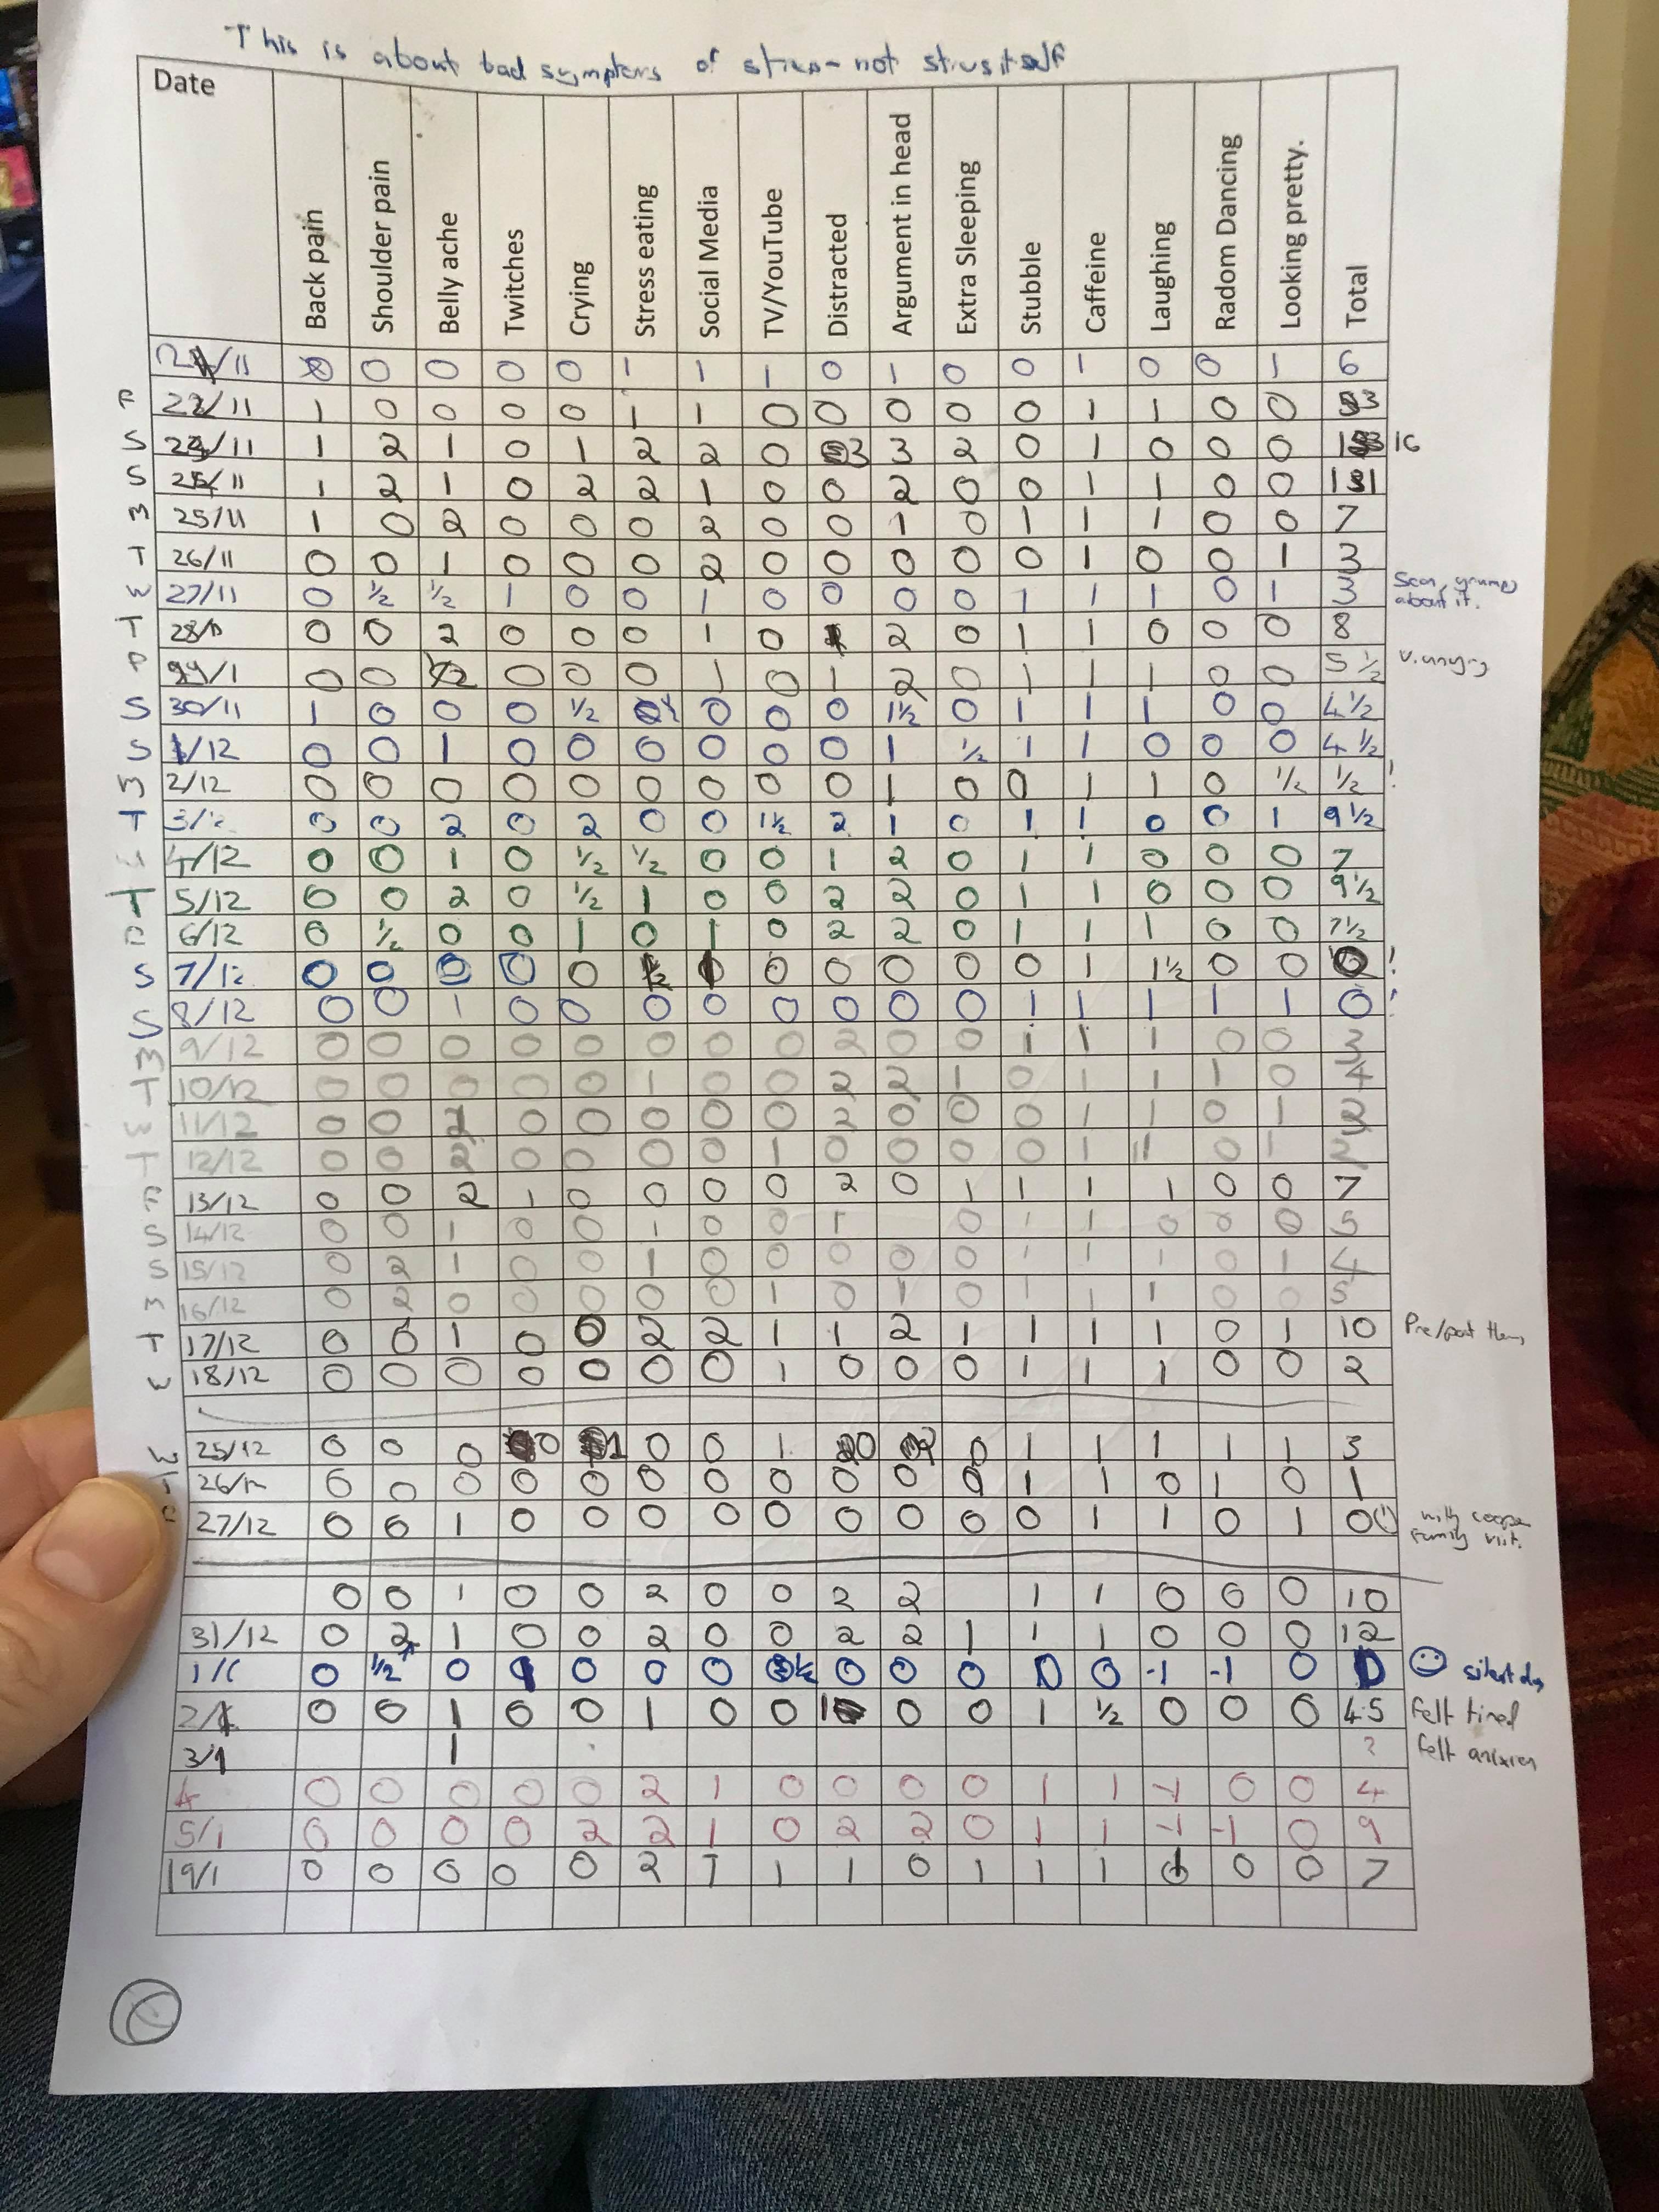 This is about bad symptoms of stress - not stress itself
Date Back pain Shoulder pain Belly ache Twitches Crying Stress eating Social Media TV/YouTube Distracted Argument in head Extra Sleeping Stubble Caffeine Laughing Radom Dancing Looking pretty. Total
/11 0 0 0 0 0 1 1 1 0 1 0 0 1 0 0 1 6
F 22/11 1 0 0 0 0 1 1 0 0 0 0 0 1 1 0 0 3
S /11 1 2 1 0 1 2 2 0 3 3 2 0 1 0 0 0 16
S /11 1 2 1 0 2 2 1 0 0 2 0 0 1 1 0 0
M 25/11 1 0 2 0 0 0 2 0 0 1 0 1 1 1 0 0 7
T 26/11 0 0 1 0 0 0 2 0 0 0 0 0 1 0 0 1 3
W 27/11 0 ½ ½ 1 0 0 1 0 0 0 0 1 1 1 0 1 3 about it.
T 28/11 0 0 2 0 0 0 1 0 2 0 1 1 0 0 0 8
F 0 0 0 0 0 1 0 1 2 0 1 1 1 0 0 5 ½ v. angry
S 30/11 1 0 0 0 ½ 0 0 0 1½ 0 1 1 1 0 0 4½
S 1/12 0 0 1 0 0 0 0 0 0 1 ½ 1 1 0 0 0 4½
M 2/12 0 0 0 0 0 0 0 0 0 1 0 0 1 1 0 ½ ½ !
T 3/12 0 0 2 0 2 0 0 1½ 2 1 0 1 1 0 0 1 9½
W 4/12 0 0 1 0 ½ ½ 0 0 1 2 0 1 1 0 0 0 7
T 5/12 0 0 2 0 ½ 1 0 0 2 2 0 1 1 0 0 0 9½
F 6/12 0 ½ 0 0 1 0 1 0 2 2 0 1 1 1 0 0 7½
S 7/12 0 0 0 0 0 0 0 0 0 0 0 1 1½ 0 0 0 !
S 8/12 0 0 1 0 0 0 0 0 0 0 0 1 1 1 1 1 0 !
M 9/12 0 0 0 0 0 0 0 0 2 0 0 1 1 1 0 0 3
T 10/12 0 0 0 0 0 1 0 0 2 2 1 0 1 1 1 0 4
W 11/12 0 0 0 0 0 0 0 2 0 0 0 1 1 0 1 2
T 12/12 0 0 2 0 0 0 0 1 0 0 0 0 1 11 0 1 2
F 13/12 0 0 2 1 0 0 0 0 2 0 1 1 1 1 0 0 7
S 14/12 0 0 1 0 0 1 0 0 1 0 1 1 0 0 0 5
S 15/12 0 2 1 0 0 1 0 0 0 0 0 1 1 1 0 1 4
M 16/12 0 2 0 0 0 0 0 1 0 1 0 1 1 1 0 0 5
T 17/12 0 0 1 0 0 2 2 1 1 2 1 1 1 1 0 1 10 Pre/post
W 18/12 0 0 0 0 0 0 0 1 0 0 0 1 1 1 0 0 2
W 25/12 0 0 0 0 1 0 0 1 0 0 1 1 1 1 1 3
T 26/12 0 0 0 0 0 0 0 0 0 0 0 1 1 0 1 0 1
F 27/12 0 0 1 0 0 0 0 0 0 0 0 0 1 1 0 1 0 with
family visit.
0 0 1 0 0 2 0 0 2 2 1 1 0 0 0 10
31/12 0 2 1 0 0 2 0 0 2 2 1 1 1 0 0 0 12
1/1 0 ½ 0 0 0 0 0 0 0 0 0 -1 -1 0 0 silent day
2/1 0 0 1 0 0 1 0 0 1 0 0 1 ½ 0 0 0 4.5 felt tired
3/1 1 ? felt
4 0 0 0 0 0 2 1 0 0 0 0 1 1 -1 0 0 4
5/1 0 0 0 0 2 2 1 0 2 2 0 1 1 -1 -1 0 9
19/1 0 0 0 0 0 2 1 1 1 0 1 1 1 0 0 7